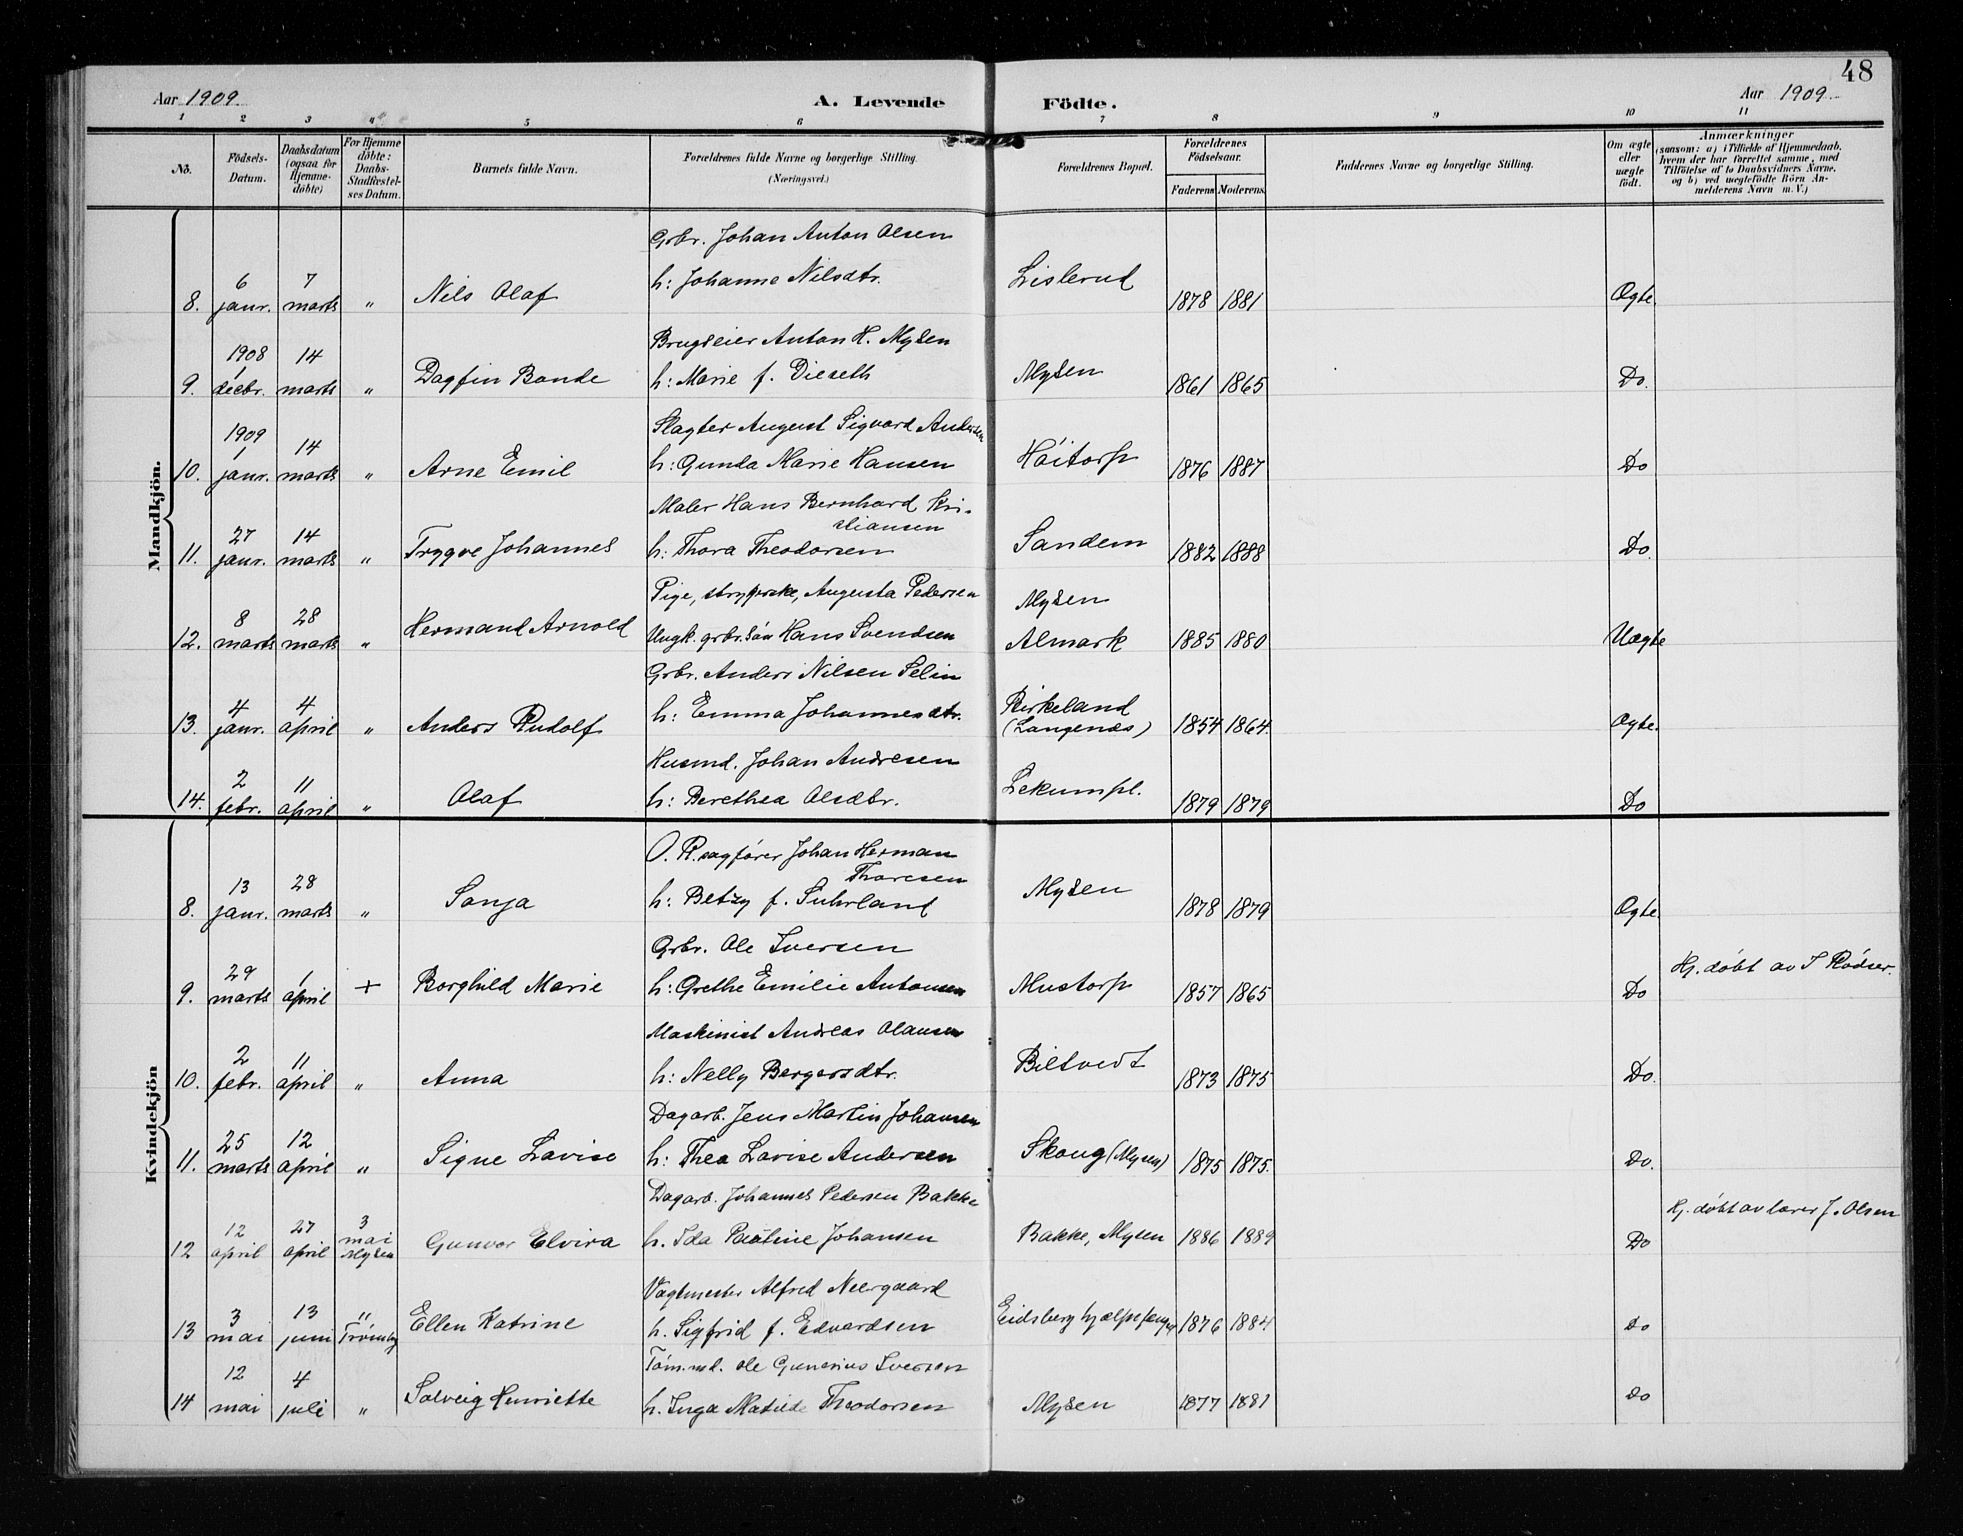 48
Aar 1909. A. Levende Födte. Aar 1909.
1 2 3 4 5 6 7 8 9 10 11
No. Födsels-Datum. Daabsdatum (ogsaa for Hjemmedöbte) For Hjemmedöbte: Daabs-Stadfæstelses Datum. Barnets fulde Navn. Forældrenes fulde Navne og borgerlige Stilling. (Næringsvei.) Forældrenes Bopæl. Forældrenes Födselsaar. Faderens Moderens. Faddernes Navne og borgerlige Stilling. Om ægte eller uægte födt. Anmærkninger (saasom: a) i Tilfælde af Hjemmedaab, hvem der har forrettet samme, med Tilföielse af to Daabsvidners Navne, og b) ved uægtefödte Börn Anmelderens Navn m. V.)
Mandkjön.
Grbr. Johan Anton Olsen
8. 6 janr. 7 marts " Nils Olaf h: Johanne Nilsdtr. Lislerud 1878 1881 Ægte.
Brugseier Anton H. Mysen
9. 1908 1 decbr. 14 marts " Dagfin Bonde h: Marie f. Dieseth Mysen 1861 1865 Do.
Slagter August Sigvard Andersen
10. 1909 1 janr. 14 marts " Arne Emil h: Gunda Marie Hansen Höitorp 1876 1887 Do
Maler Hans Bernhard Kri-
stiansen
11. 27 janr. 14 marts " Trygve Johannes h: Thora Theodorsen Sandem 1882 1888 Do.
Pige, Augusta Pedersen Mysen
12. 8 marts 28 marts " Hermand Arnold Ungk. grbr.sön Hans Svendsen Almark 1885 1880 Uægte
Grbr. Anders Nilsen Selin
13. 4 janr. 4 april " Anders Rudolf h: Emma Johannesdtr. Birkeland (Langenæs) 1854 1864. Ægte.
Husmd. Johan Andresen
14. 2 febr. 11 april " Olaf h: Berethea Olsdtr. Lekumpl. 1879 1879 Do
Kvindekjön
O. R. sagförer Johan Herman
Thoresen
8. 13 janr. 28 marts " Sonja h: Betzy f. Suhrland Mysen 1878 1879 Ægte.
Grbr. Ole Iversen
9. 29 marts 1 april + Borghild Marie h: Grethe Emilie Antonsen Mustorp 1857 1865 Do Hj. döbt av S Rödser.
Maskinist Andreas Olausen
10. 2 febr. 11 april " Anna h: Nelly Bergersdtr. Biltvedt 1873 1875 Do.
Dagarb. Jens Martin Johansen
11. 25 marts 12 april " Signe Lovise h: Thea Lovise Andersen Skoug (Mysen) 1875 1875. Do.
Dagarb. Johannes Pedersen Bakke
12 12 april 27 april 3 mai Mysen Gunvor Elvira h. Ida Pauline Johansen Bakke, Mysen 1886 1889 Do Hj. döbt av lærer J. Olsen
Vagtmester Alfred Neergaard
13 3 mai 13 juni " Trömborg Ellen Katrine h. Sigfrid f. Edvardsen Eidsberg hjælpefængsel 1876 1884 Do
Töm.md. Ole Gunerius Iversen
14 12 mai 4 juli " Solveig Henriette h. Inga Matilde Theodorsen Mysen 1877 1881 Do